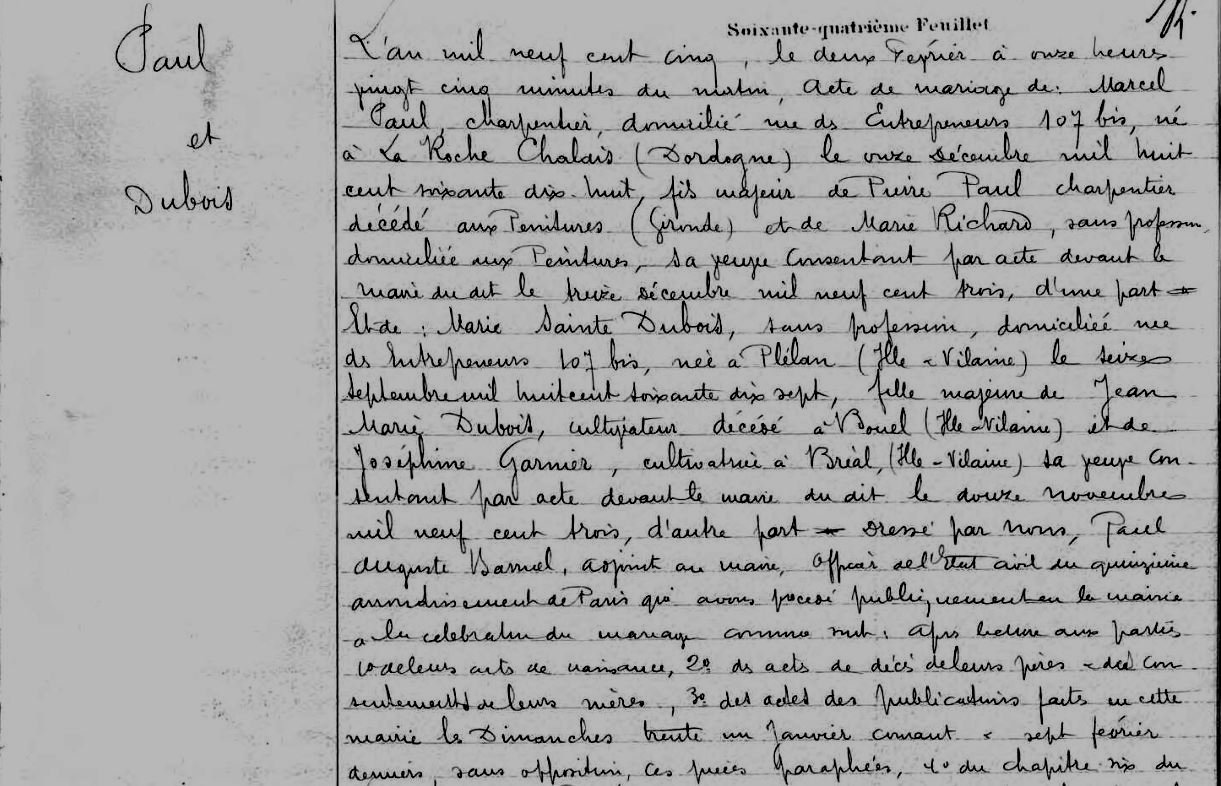 Soixante-quatrième Feuillet
Paul
et
Dubois
L'an mil neuf cent cinq, le deux Février à onze heures
vingt cinq minutes du matin, Acte de mariage de: Marcel
Paul, charpentier, domicilié rue ds Entrepreneurs 107 bis, né
à La Roche Chalais (Dordogne) le onze Décembre mil huit
cent soixante dix-huit, fils majeur de Pierre Paul charpentier
décédé aux Peintures (Gironde) et de Marie Richard, sans profession,
domiciliée aux Peintures, sa veuve consentant par acte devant le
maire du dit le treize Décembre mil neuf cent trois, d'une part
Et de: Marie Sainte Dubois, sans profession, domiciliée rue
ds Entrepreneurs 107 bis, née à Plélan (Ille-Vilaine) le seize
septembre mil huit cent soixante dix sept, fille majeure de Jean
Marie Dubois, cultivateur décédé à Bouel (Ille-Vilaine) et de
Joséphine Garnier, cultivatrice à Bréal, (Ille-Vilaine) sa veuve con-
sentant par acte devant le maire du dit le douze novembre
mil neuf cent trois, d'autre part Dressé par nous, Paul
Auguste adjoint au maire, officier de l'Etat civil du quinzième
arrondissement de Paris qui avons procédé publiquement en la mairie
à la celebration du mariage comme suit: après lecture aux parties
1o de leurs acts de naissance, 2o ds acts de décès de leurs pères & des con
sentements de leurs mères, 3o des actes des publications faits en cette
mairie ls Dimanches trente un Janvier courant & sept février
derniers, sans opposition, ces pièces paraphées, 4o du chapitre six du